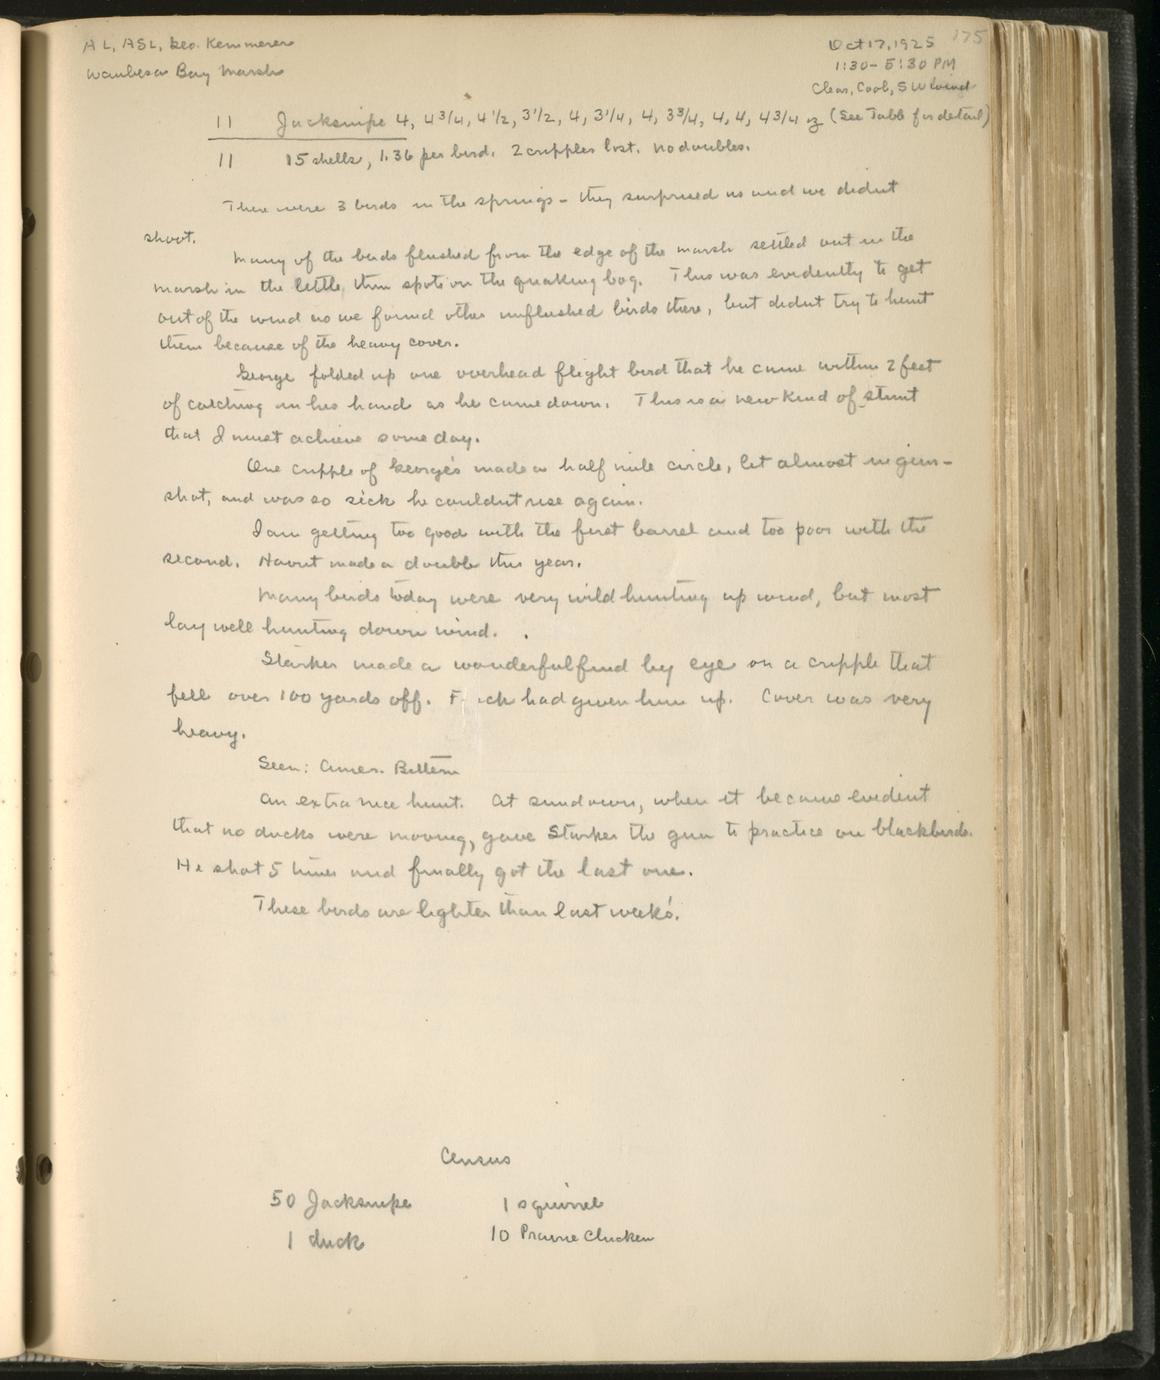 175
AL, ASL, Geo. Kemmerer
Waubesa Bay Marsh
Oct 17, 1925
1:30-5:30 PM
Clear, Cool, SW wind
11 Jacksnipe 4, 4 3/4, 4 1/2, 3 1/2, 4, 3 1/4, 4, 3 3/4, 4, 4, 4 3/4 oz (See Tabb for detail)
11 15 shells, 1.36 per bird. 2 cripples lost. No doubles.
There were 3 birds in the springs - they surprised us and we didnt
shoot.
Many of the birds flushed from the edge of the marsh settled out in the
marsh in the little thin spots on the quaking bog. This was evidently to get
out of the wind as we found other unflushed birds there, but didnt try to hunt
them because of the heavy cover.
George folded up one overhead flight bird that he came within 2 feet
of catching in his hand as he came down. This is a new kind of stunt
that I must achieve some day.
One cripple of George's made a half mile circle, lit almost in gun-
shot, and was so sick he couldnt rise again.
I am getting too good with the first barrel and too poor with the
second. Havnt made a double this year.
Many birds today were very wild hunting up wind, but most
lay well hunting down wind.
Starker made a wonderful find by eye on a cripple that
fell over 100 yards off. had given him up. Cover was very
heavy.
Seen: Amer. Bittern
An extra nice hunt. At sundown, when it became evident
that no ducks were moving, gave Starker the gun to practice on blackbirds.
He shot 5 times and finally got the last one.
These birds are lighter than last week's.
Census
50 Jacksnipe 1 squirrel
1 duck 10 Prairie Chicken